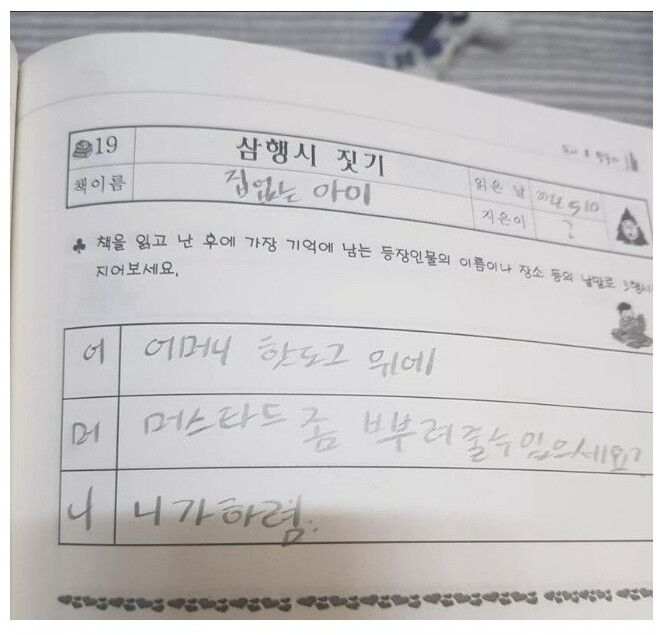 19 삼행시 짓기
책이름 집없는 아이 읽은 날
지은이 ?
♣ 책을 읽고 난 후에 가장 기억에 남는 등장인물의 이름이나 장소 등의 낱말로 3행시
지어보세요.
어 어머니 핫도그 위에
머 머스타드 좀 뿌부려줄수있으세요?
니 니가하렴.